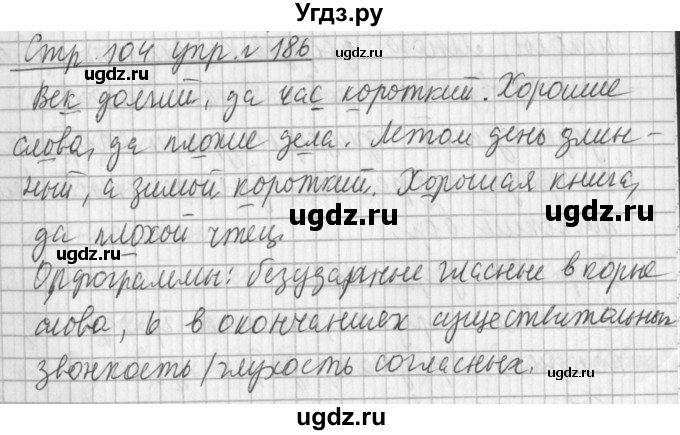 Угдз.ру
Стр. 104 упр. № 186
ugdz.ru
ugdz.ru
Век долгий, да час короткий. Хорошие
слова, да плохие дела. Летом день длин-
ugdz.ru
ugdz.ru
ный, а зимой короткий. Хорошая книга,
ugdz.ru
ugdz.ru
да плохой чтец.
ugdz.ru
Орфограммы: безударные гласные в корне
ugdz.ru
слова, ь в окончаниях существительных
ugdz.ru
звонкость/глухость согласных.
ugdz.ru
ugdz.ru